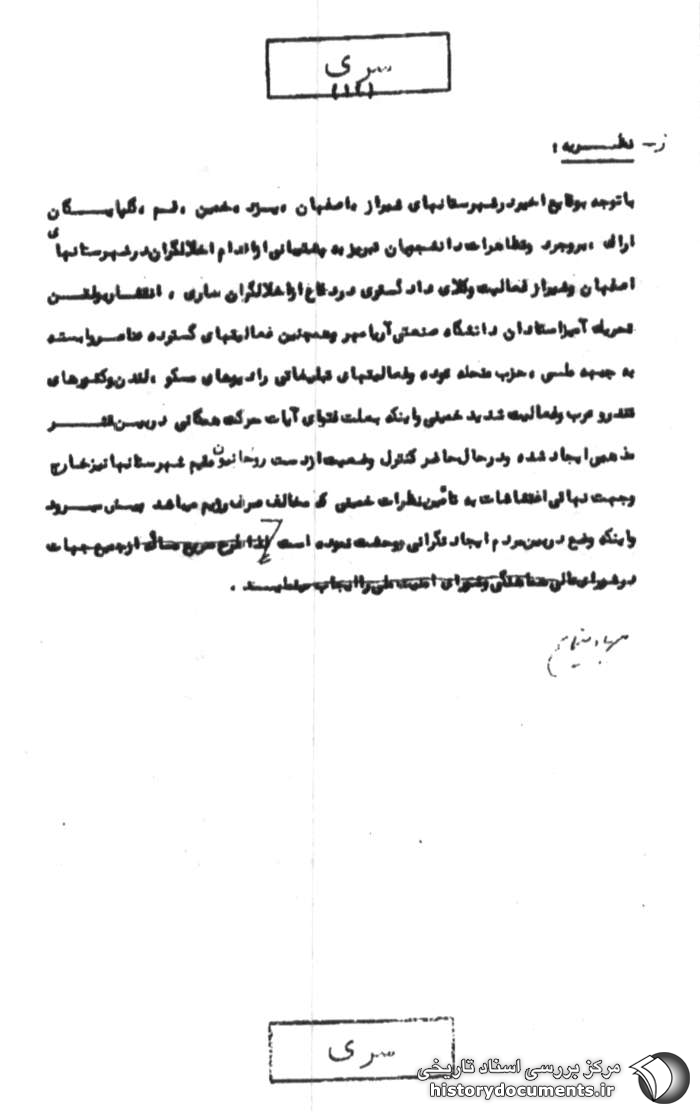 سری
(۱۴)
ز- نظریه :
با توجه بوقایع اخیر در شهرستانهای شیراز ، اصفهان ، یزد ، خمین ، قم ، گلپایگان
اراک ، بروجرد وتظاهرات دانشجویان تبریز به پشتیبانی از اقدام اخلالگران در شهرستانهای
اصفهان وشیراز فعالیت وکلای دادگستری در دفاع از اخلالگران ساری ، انتشار بولتن
تحریک آمیز استادان دانشگاه صنعتی آریامهر وهمچنین فعالیتهای گسترده عناصر وابسته
به جبهه ملی ، حزب منحله توده وفعالیتهای تبلیغاتی رادیوهای مسکو ، لندن وکشورهای
تندرو عرب وفعالیت شدید خمینی واینکه بعلت فتوای آیات حرکت همگانی در بین قشر
مذهبی ایجاد شده ودر حال حاضر کنترل وضعیت از دست روحانیون مقیم شهرستانها نیز خارج
وجهت نهائی اغتشاشات به تأمین نظرات خمینی که مخالف صرف رژیم میباشد پیش میرود
واینکه وضع در بین مردم ایجاد نگرانی ووحشت نموده است لذا طرح سریع مسأله از جمیع جهات
در شورایعالی هماهنگی وشورای امنیت ملی را ایجاب مینماید .
سری
مرکز بررسی اسناد تاریخی
historydocuments.ir